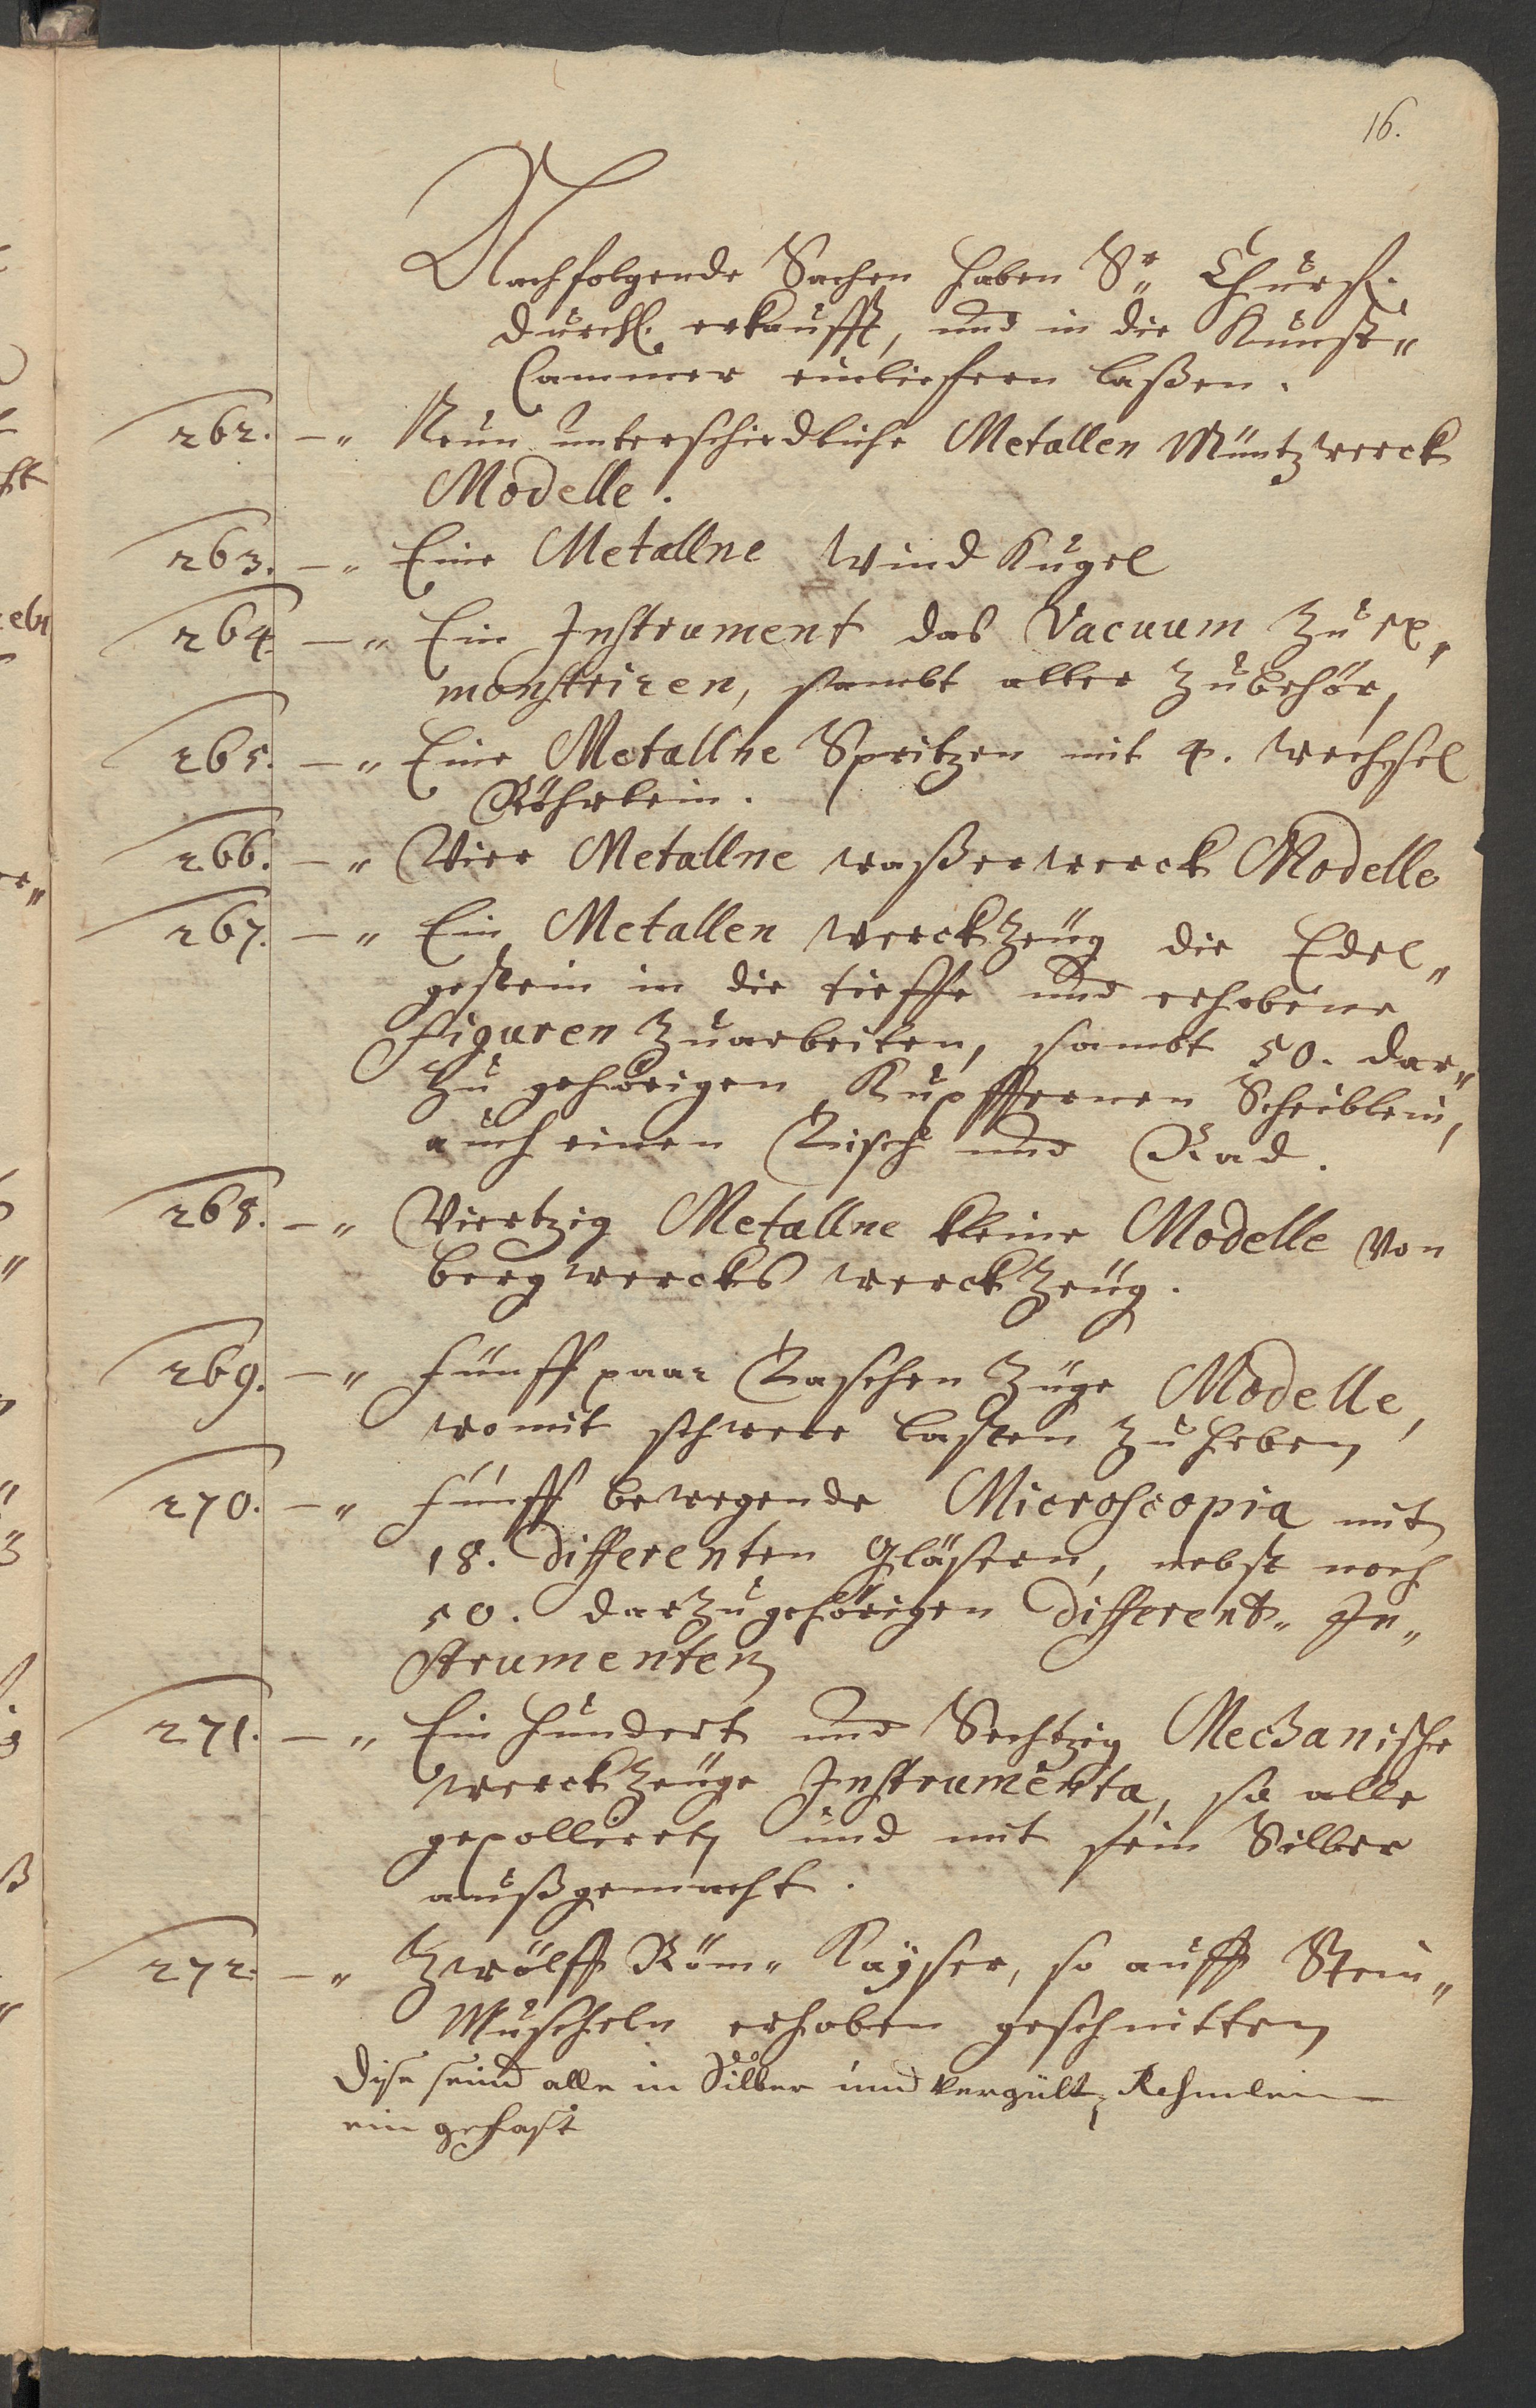 16.
Nachfolgende Sachen haben Sr. Churf.
Durchl. erkaufft, und in die Kunst„
Cammer einliefern laßen.
262. –„ Neun unterschiedliche Metallen Müntzwerck
Modelle.
263. –„ Eine Metallne Wind Kugel
264 –„ Ein Instrument das Vacuum zu ex„
monstriren, sambt aller Zubehör,
265. –„ Eine Metallne Spritzen mit 4. Wechsel
Röhrlein.
266. –„ Vier Metallne waßerwerck Modelle
267. –„ Ein Metallen WerckZeüg die Edel„
gestein in die tieffe und erhobene
Figuren Zuarbeiten, sambt 50. dar„
Zu gehörigen Kupffernen Scheiblein,
auch einen Tisch und Rad.
268. –„ Viertzig Metallne kleine Modelle von
bergwercks werckZeüg.
269. –„ Fünff paar Taschen Züge Modelle,
womit schwere lasten Zu heben
270. –„ Fünff bewegende Microscopia mit
18. differenten Gläsern, nebst noch
50. darZugehörigen different„ In„
strumenten
271. –„ Ein hundert und Sechtzig Mechanische
WerckZeüge Instrumenta, so alle
gepolliert und mit fein Silber
außgemacht.
272. –„ Zwölff Röm„ Kayser, so auff Stein„
Muscheln erhoben geschnitten
Dise seind alle in Silber und vergült Rehmlein
ein gefast